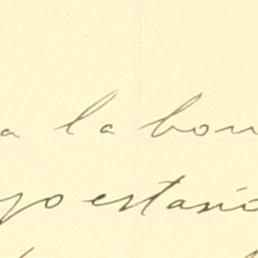 a la bon
yo estari